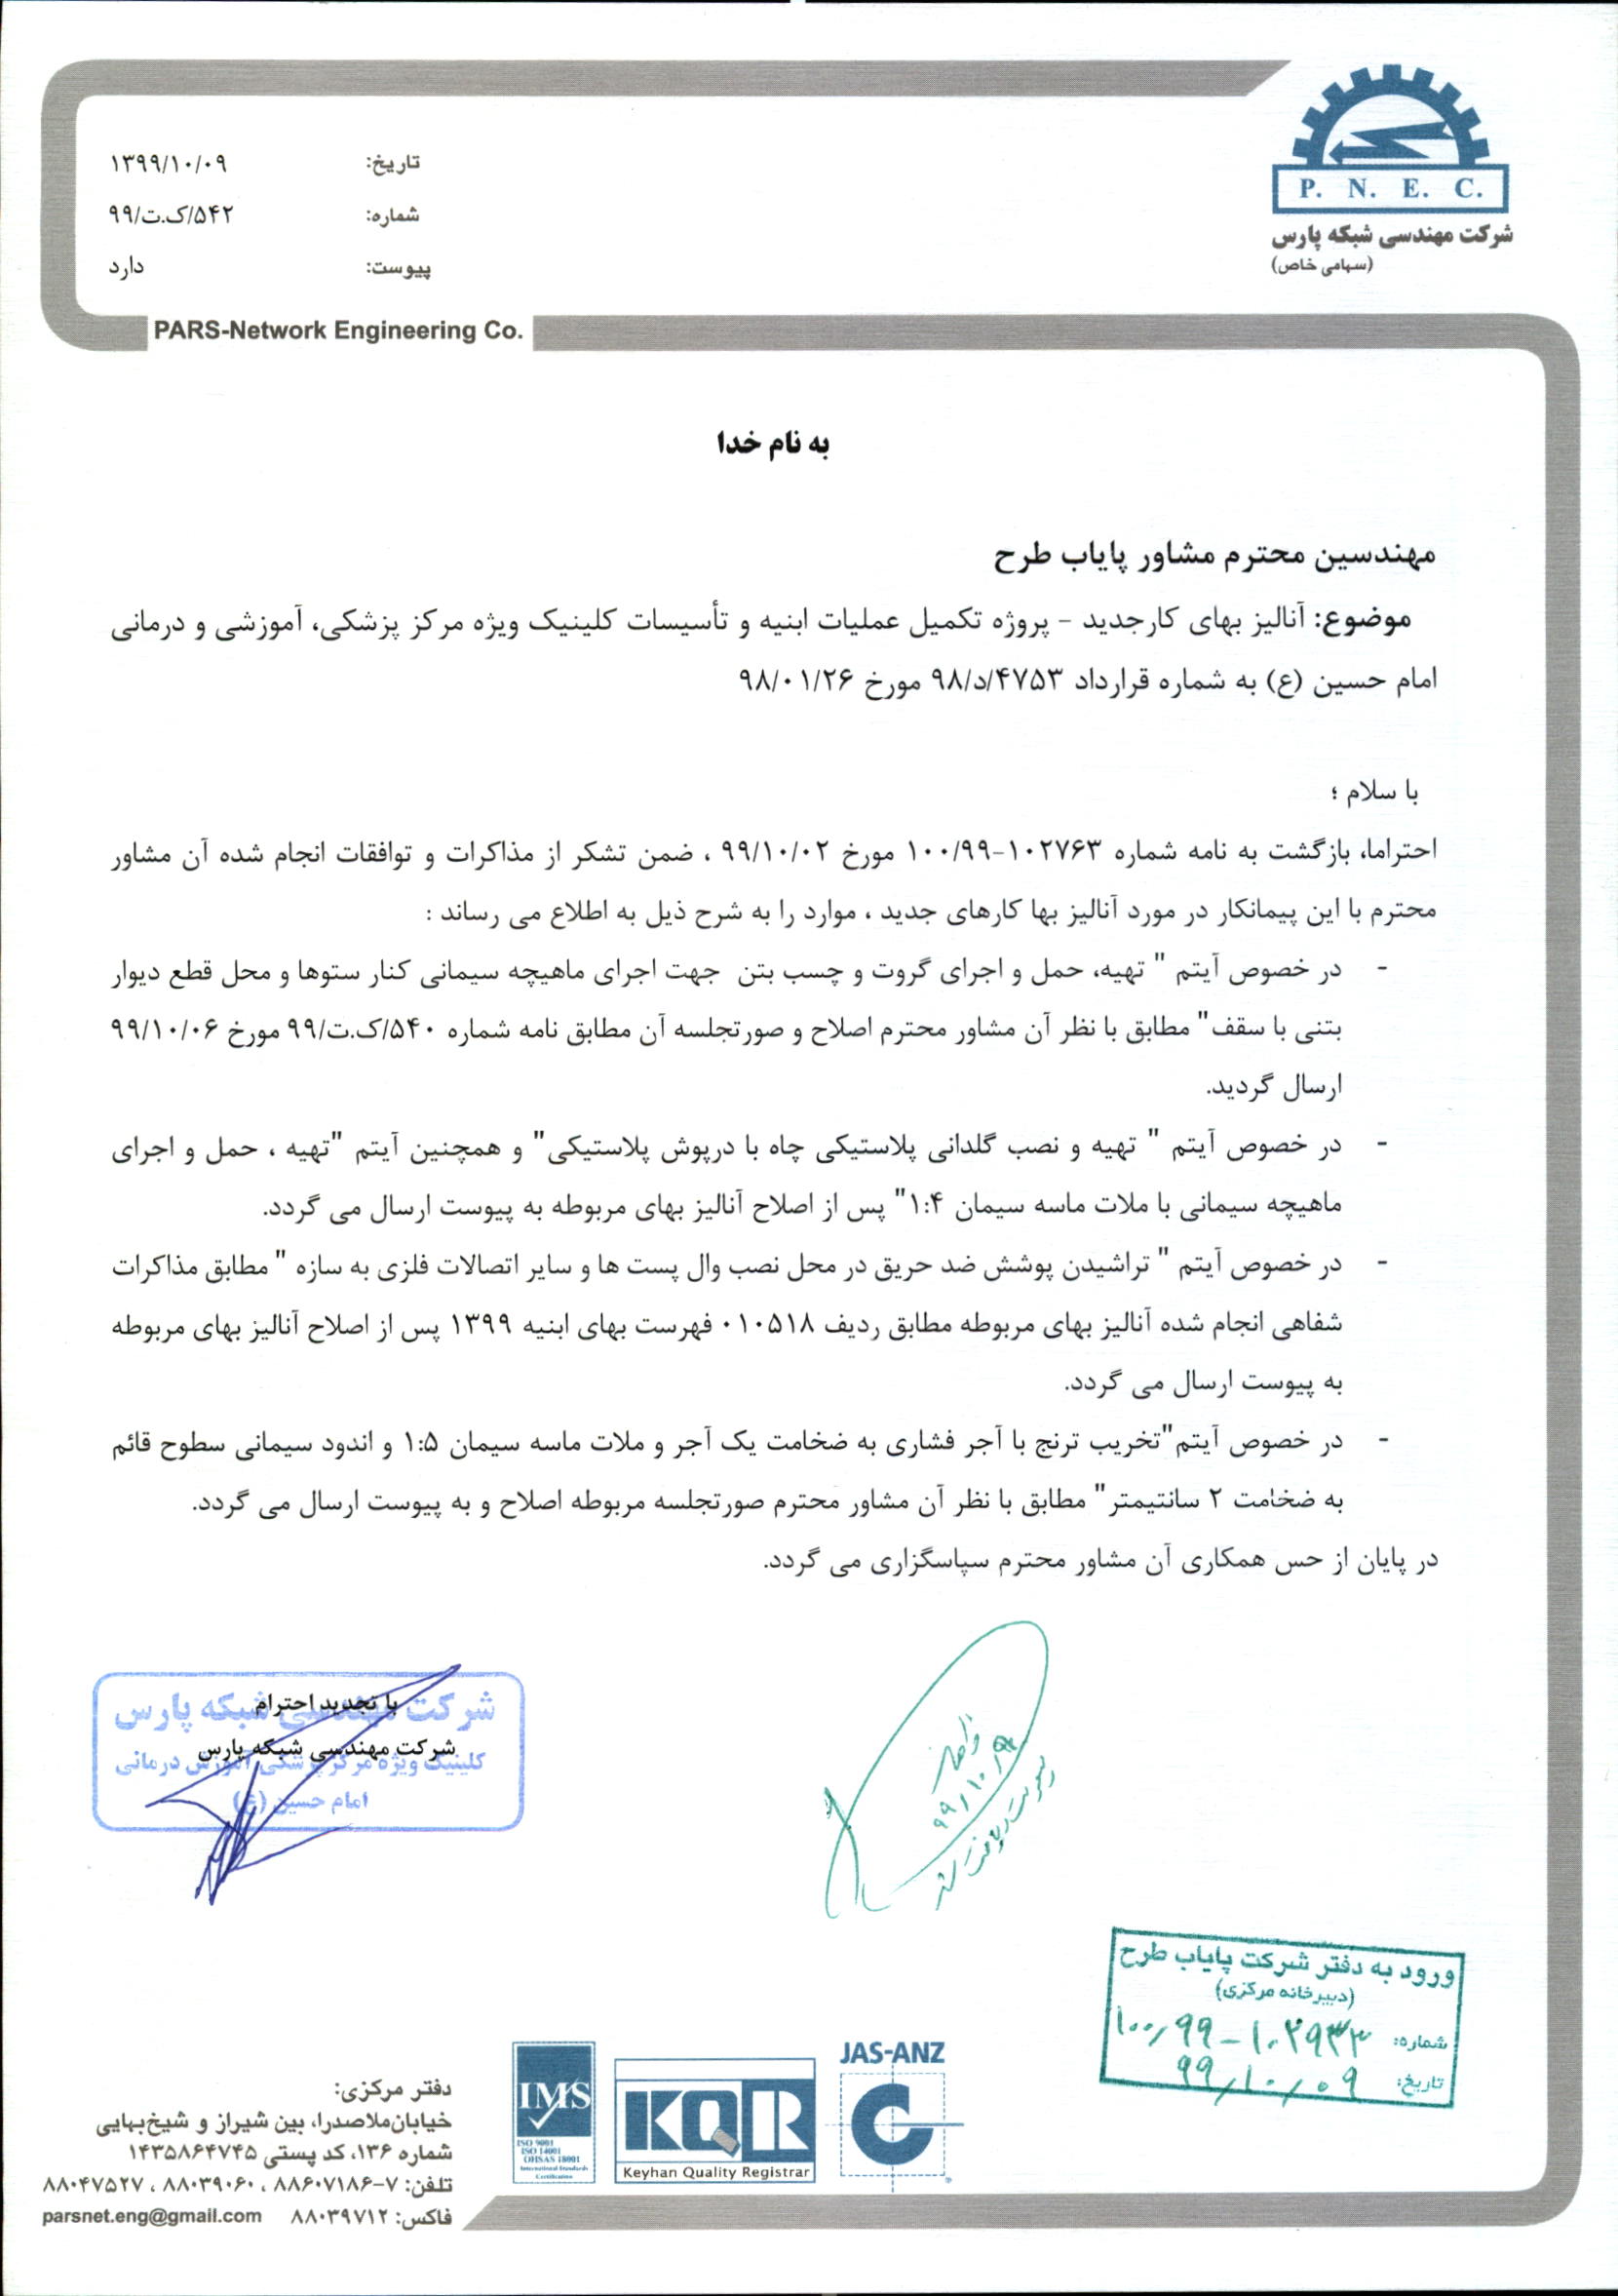 P. N. E. C.
شرکت مهندسی شبکه پارس
(سهامی خاص)
تاریخ: ۱۳۹۹/۱۰/۰۹
شماره: ۵۴۲/ک.ت/۹۹
پیوست: دارد
PARS-Network Engineering Co.
به نام خدا
مهندسین محترم مشاور پایاب طرح
موضوع: آنالیز بهای کارجدید - پروژه تکمیل عملیات ابنیه و تأسیسات کلینیک ویژه مرکز پزشکی، آموزشی و درمانی
امام حسین (ع) به شماره قرارداد ۴۷۵۳/د/۹۸ مورخ ۹۸/۰۱/۲۶
با سلام ؛
احتراما، بازگشت به نامه شماره ۱۰۲۷۶۳-۱۰۰/۹۹ مورخ ۹۹/۱۰/۰۲ ، ضمن تشکر از مذاکرات و توافقات انجام شده آن مشاور
محترم با این پیمانکار در مورد آنالیز بها کارهای جدید ، موارد را به شرح ذیل به اطلاع می رساند :
- در خصوص آیتم " تهیه، حمل و اجرای گروت و چسب بتن جهت اجرای ماهیچه سیمانی کنار ستوها و محل قطع دیوار
بتنی با سقف" مطابق با نظر آن مشاور محترم اصلاح و صورتجلسه آن مطابق نامه شماره ۵۴۰/ک.ت/۹۹ مورخ ۹۹/۱۰/۰۶
ارسال گردید.
- در خصوص آیتم " تهیه و نصب گلدانی پلاستیکی چاه با درپوش پلاستیکی" و همچنین آیتم "تهیه ، حمل و اجرای
ماهیچه سیمانی با ملات ماسه سیمان ۱:۴" پس از اصلاح آنالیز بهای مربوطه به پیوست ارسال می گردد.
- در خصوص آیتم " تراشیدن پوشش ضد حریق در محل نصب وال پست ها و سایر اتصالات فلزی به سازه " مطابق مذاکرات
شفاهی انجام شده آنالیز بهای مربوطه مطابق ردیف ۰۱۰۵۱۸ فهرست بهای ابنیه ۱۳۹۹ پس از اصلاح آنالیز بهای مربوطه
به پیوست ارسال می گردد.
- در خصوص آیتم"تخریب ترنج با آجر فشاری به ضخامت یک آجر و ملات ماسه سیمان ۱:۵ و اندود سیمانی سطوح قائم
به ضخامت ۲ سانتیمتر" مطابق با نظر آن مشاور محترم صورتجلسه مربوطه اصلاح و به پیوست ارسال می گردد.
در پایان از حس همکاری آن مشاور محترم سپاسگزاری می گردد.
با تجدید احترام
شرکت مهندسی شبکه پارس
شرکت مهندسی شبکه پارس
کلینیک ویژه مرکز پزشکی آموزش درمانی
امام حسین (ع)
۹۹/۱۰/۹
دریافت شد
ورود به دفتر شرکت پایاب طرح
(دبیرخانه مرکزی)
شماره: ۱۰۰/۹۹-۱۰۲۹۳۳
تاریخ: ۹۹/۱۰/۰۹
JAS-ANZ
KQR
Keyhan Quality Registrar
IMS
ISO 9001
ISO 14001
OHSAS 18001
International Standards
Certification
دفتر مرکزی:
خیابان‌ملاصدرا، بین شیراز و شیخ‌بهایی
شماره ۱۳۶، کد پستی ۱۴۳۵۸۶۴۷۴۵
تلفن: ۷-۸۸۶۰۷۱۸۶ ، ۸۸۰۳۹۰۶۰ ، ۸۸۰۴۷۵۲۷
فاکس: ۸۸۰۳۹۷۱۲ parsnet.eng@gmail.com